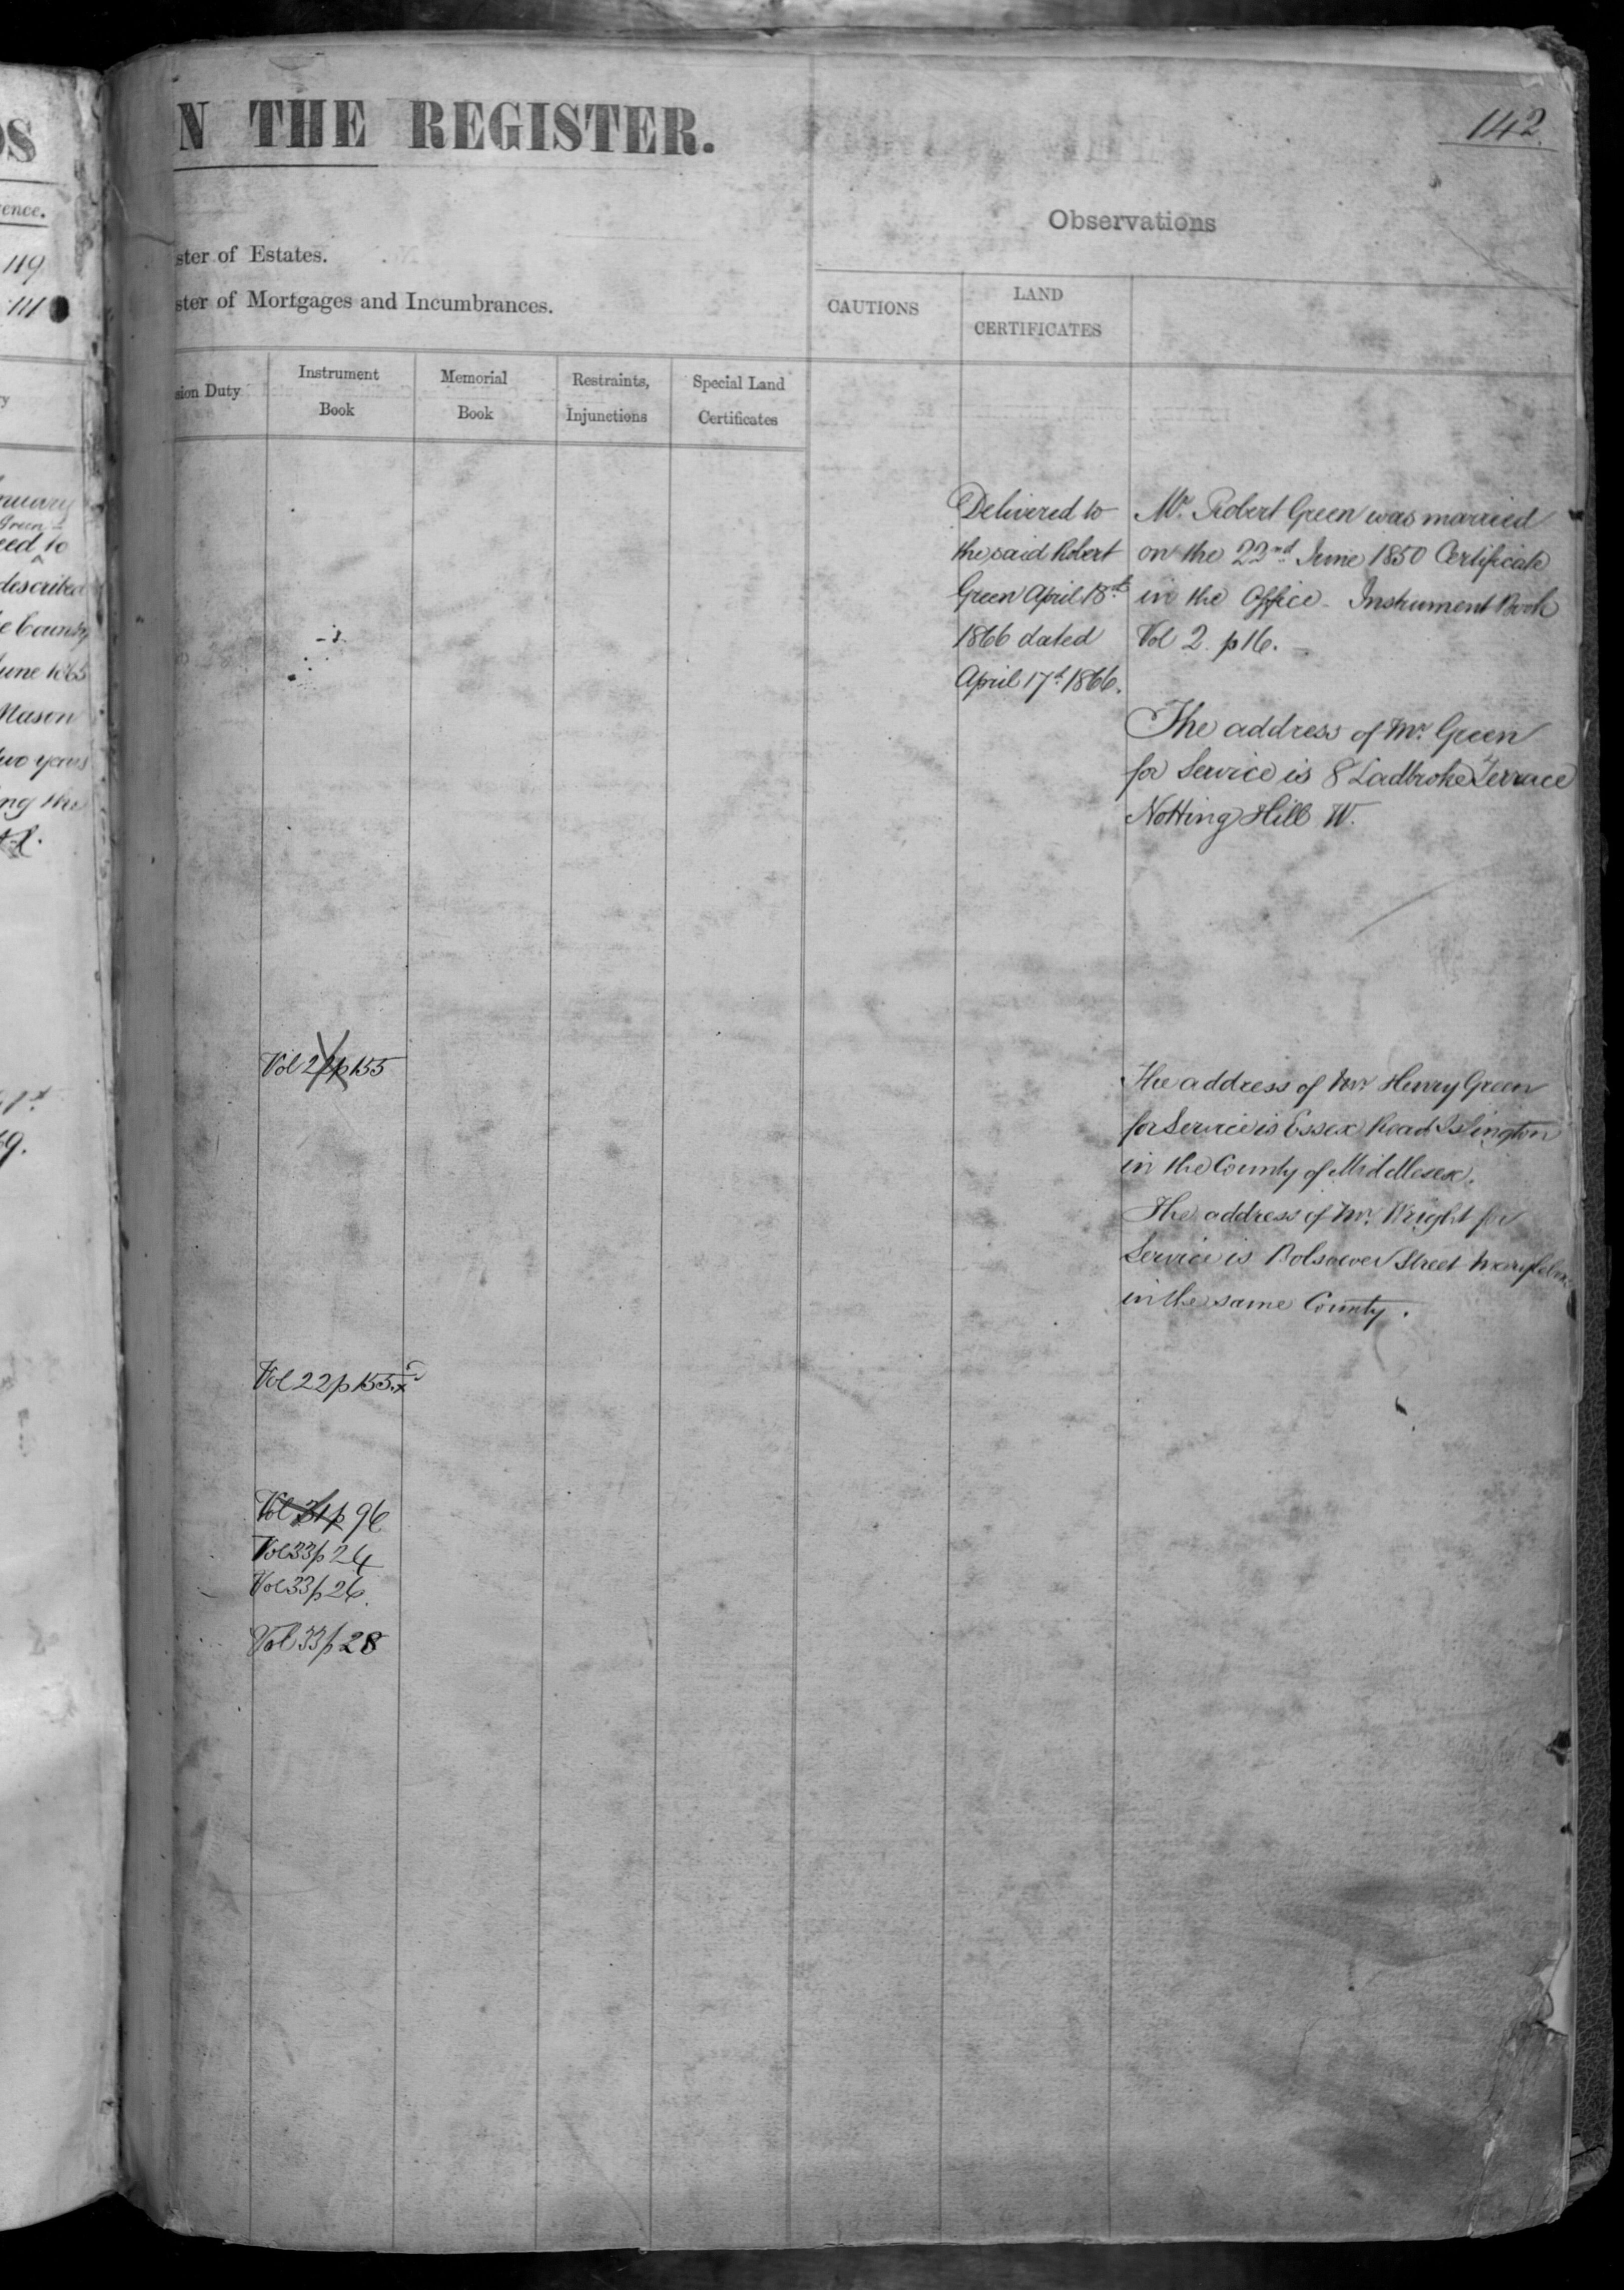 N THE REGISTER.
142.
Observations
ster of Estates.
ster of Mortgages and Incumbrances.
CAUTIONS
LAND
CERTIFICATES
sion Duty
Instrument
Book
Memorial
Book
Restraints,
Injunctions
Special Land
Certificates
Delivered to
the said Robert
Green April 18th
1866 dated
April 17th 1866.
Mr. Robert Green was married
on the 22nd June 1850 Certificate
in the Office - Instrument Book
Vol 2. p 16.
The address of Mr. Green
for Service is 8 Ladbroke Terrace
Notting Hill W.
Vol 22 p 155
The address of Mr. Henry Green
for Service is Essex Road Islington
in the County of Middlesex.
The address of Mr. Wright for
Service is Bolsover Street Marylebone
in the same County.
Vol 22 p 155 x
Vol 31 p 96
Vol 33 p 24
Vol 33 p 26.
Vol 33 p 28
OS
ence.
119
111
nuary
Green
eed to
described
e County
June 1865
Mason
two years
ng the